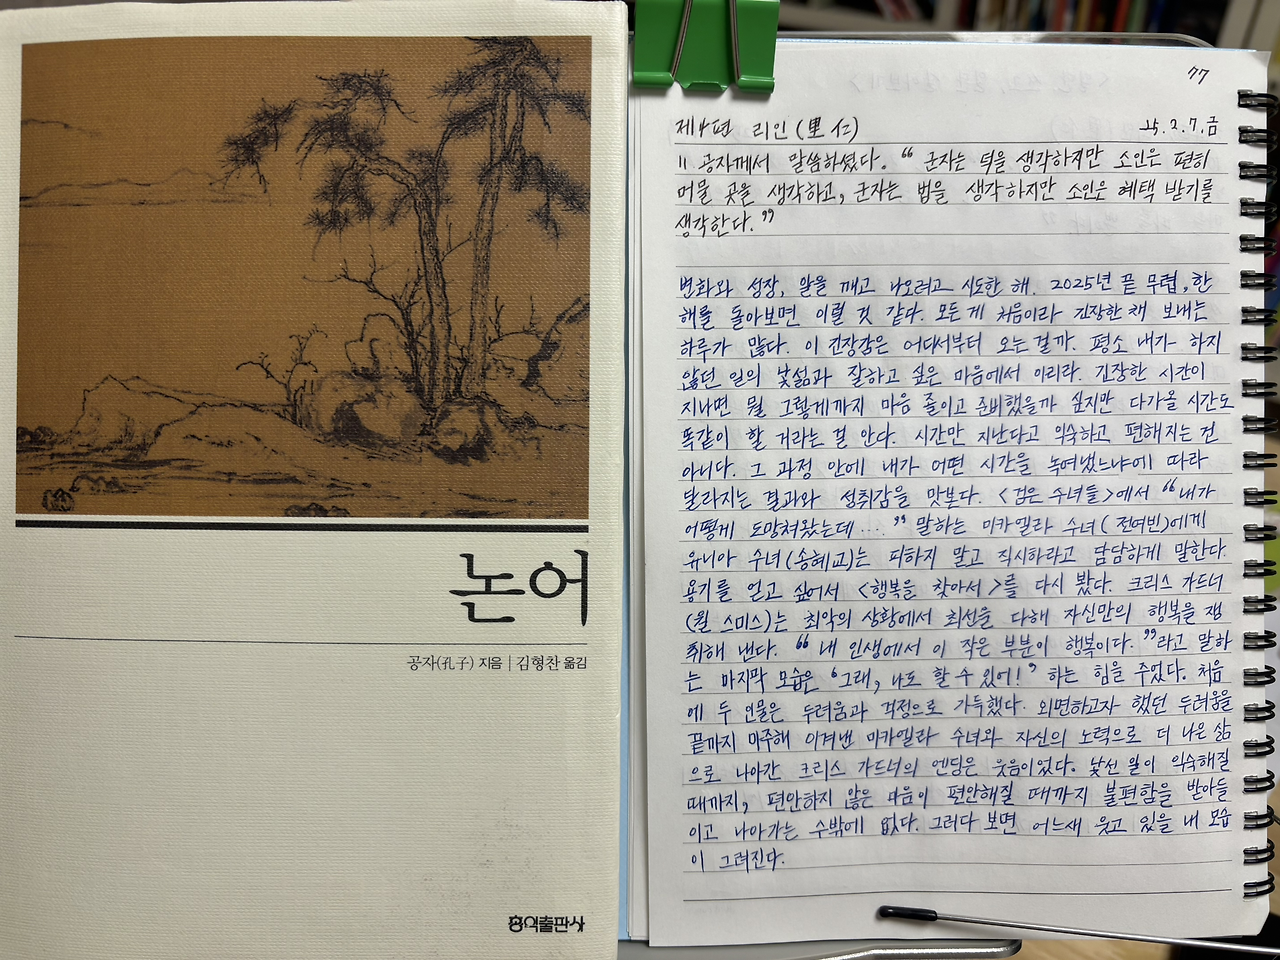 논어
공자(孔子) 지음 | 김형찬 옮김
홍익출판사
77
제4편 리인(里仁) 25.2.7.금
11 공자께서 말씀하셨다. "군자는 덕을 생각하지만 소인은 편히
머물 곳을 생각하고, 군자는 법을 생각하지만 소인은 혜택 받기를
생각한다."
변화와 성장, 알을 깨고 나오려고 시도한 해. 2025년 끝 무렵, 한
해를 돌아보면 이럴 것 같다. 모든 게 처음이라 긴장한 채 보내는
하루가 많다. 이 긴장감은 어디서부터 오는 걸까. 평소 내가 하지
않던 일의 낯섦과 잘하고 싶은 마음에서 이리라. 긴장한 시간이
지나면 뭘 그렇게까지 마음 졸이고 준비했을까 싶지만 다가올 시간도
똑같이 할 거라는 걸 안다. 시간만 지난다고 익숙하고 편해지는 건
아니다. 그 과정 안에 내가 어떤 시간을 녹여냈느냐에 따라
달라지는 결과와 성취감을 맛본다. <검은 수녀들>에서 "내가
어떻게 도망쳐왔는데...." 말하는 미카엘라 수녀(전여빈)에게
유니아 수녀(송혜교)는 피하지 말고 직시하라고 담담하게 말한다.
용기를 얻고 싶어서 <행복을 찾아서>를 다시 봤다. 크리스 가드너
(윌 스미스)는 최악의 상황에서 최선을 다해 자신만의 행복을 쟁
취해 낸다. "내 인생에서 이 작은 부분이 행복이다."라고 말하
는 마지막 모습은 '그래, 나도 할 수 있어!' 하는 힘을 주었다. 처음
에 두 인물은 두려움과 걱정으로 가득했다. 외면하고자 했던 두려움을
끝까지 마주해 이겨낸 미카엘라 수녀와 자신의 노력으로 더 나은 삶
으로 나아간 크리스 가드너의 엔딩은 웃음이었다. 낯선 일이 익숙해질
때까지, 편안하지 않은 마음이 편안해질 때까지 불편함을 받아들
이고 나아가는 수밖에 없다. 그러다 보면 어느새 웃고 있을 내 모습
이 그려진다.